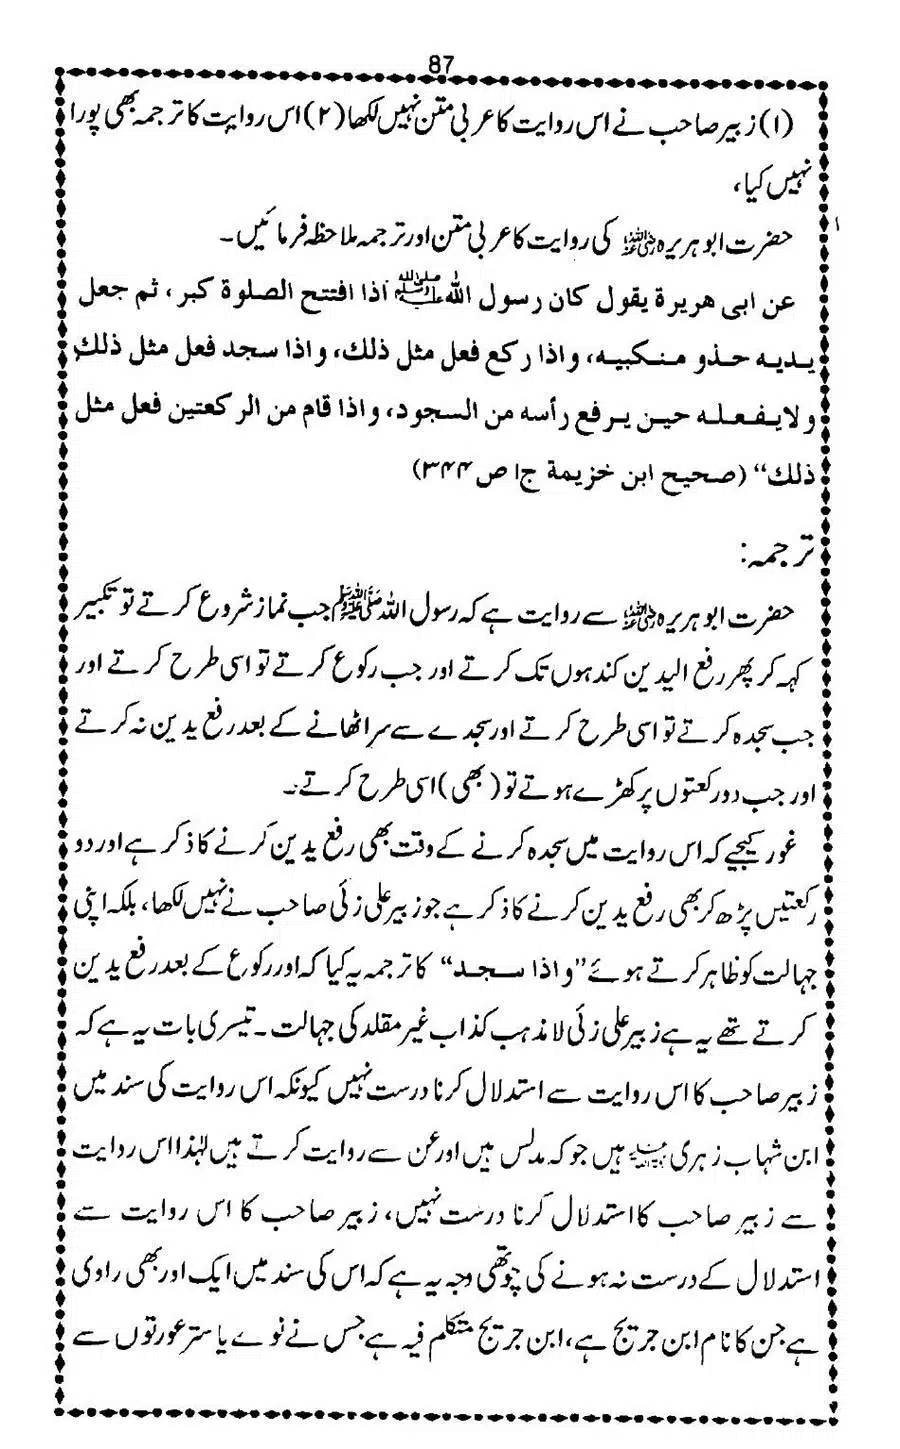 87
(۱) زبیر صاحب نے اس روایت کا عربی متن نہیں لکھا (۲) اس روایت کا ترجمہ بھی پورا
نہیں کیا،
حضرت ابو ہریرہ رضی اللہ عنہ کی روایت کا عربی متن اور ترجمہ ملاحظہ فرمائیں۔
عن ابی هریرة یقول کان رسول اللهﷺ اذا افتتح الصلوة کبر، ثم جعل
یدیه حذو منکبیه، واذا رکع فعل مثل ذلك، واذا سجد فعل مثل ذلك
ولایفعله حین یرفع رأسه من السجود، واذا قام من الرکعتین فعل مثل
ذلك“ (صحیح ابن خزیمة ج۱ ص ۳۴۴)
ترجمہ:
حضرت ابو ہریرہ رضی اللہ عنہ سے روایت ہے کہ رسول اللہﷺ جب نماز شروع کرتے تو تکبیر
کہہ کر پھر رفع الیدین کندہوں تک کرتے اور جب رکوع کرتے تو اسی طرح کرتے اور
جب سجدہ کرتے تو اسی طرح کرتے اور سجدے سے سر اٹھانے کے بعد رفع یدین نہ کرتے
اور جب دو رکعتوں پر کھڑے ہوتے تو (بھی) اسی طرح کرتے۔
غور کیجیے کہ اس روایت میں سجدہ کرنے کے وقت بھی رفع یدین کرنے کا ذکر ہے اور دو
رکعتیں پڑھ کر بھی رفع یدین کرنے کا ذکر ہے جو زبیر علی زئی صاحب نے نہیں لکھا، بلکہ اپنی
جہالت کو ظاہر کرتے ہوئے ”واذا سجد“ کا ترجمہ یہ کیا کہ اور رکوع کے بعد رفع یدین
کرتے تھے یہ ہے زبیر علی زئی لا مذہب کذاب غیر مقلد کی جہالت۔ تیسری بات یہ ہے کہ
زبیر صاحب کا اس روایت سے استدلال کرنا درست نہیں کیونکہ اس روایت کی سند میں
ابن شہاب زہری رحمۃ اللہ علیہ ہیں جو کہ مدلس ہیں اور عن سے روایت کرتے ہیں لہٰذا اس روایت
سے زبیر صاحب کا استدلال کرنا درست نہیں، زبیر صاحب کا اس روایت سے
استدلال کے درست نہ ہونے کی چوتھی وجہ یہ ہے کہ اس کی سند میں ایک اور بھی راوی
ہے جن کا نام ابن جریج ہے، ابن جریج متکلم فیہ ہے جس نے نوے یا ستر عورتوں سے